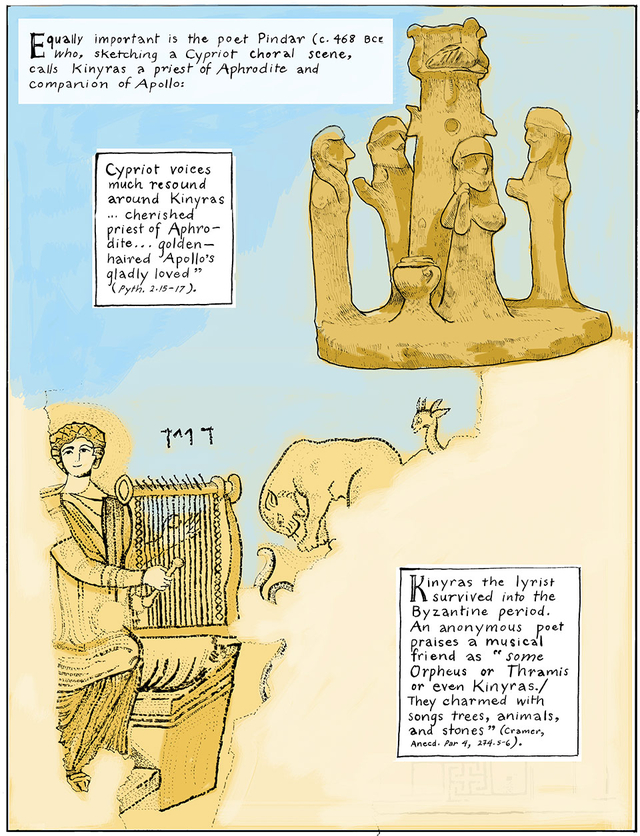 Equally important is the poet Pindar (c. 468 BCE
who, sketching a Cypriot choral scene,
calls Kinyras a priest of Aphrodite and
companion of Apollo:
Cypriot voices
much resound
around Kinyras
... cherished
priest of Aphro-
dite... golden-
haired Apollo's
gladly loved”
(Pyth. 2.15-17).
דויד
Kinyras the lyrist
survived into the
Byzantine period.
An anonymous poet
praises a musical
friend as “some
Orpheus or Thramis
or even Kinyras./
They charmed with
songs trees, animals,
and stones” (Cramer,
Anecd. Par 4, 274.5-6).